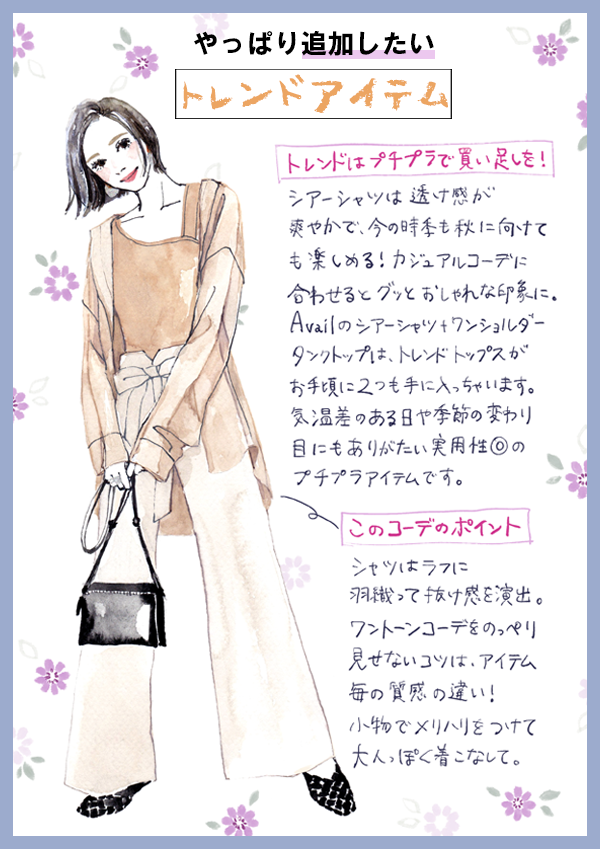 やっぱり追加したい
トレンドアイテム
トレンドはプチプラで買い足しを！
シアーシャツは透け感が
爽やかで、今の時季も秋に向けて
も楽しめる！カジュアルコーデに
合わせるとグッとおしゃれな印象に。
Availのシアーシャツ+ワンショルダー
タンクトップは、トレンドトップスが
お手頃に2つも手に入っちゃいます。
気温差のある日や季節の変わり
目にもありがたい実用性◎の
プチプラアイテムです。
このコーデのポイント
シャツはラフに
羽織って抜け感を演出。
ワントーンコーデをのっぺり
見せないコツは、アイテム
毎の質感の違い！
小物でメリハリをつけて
大人っぽく着こなして。